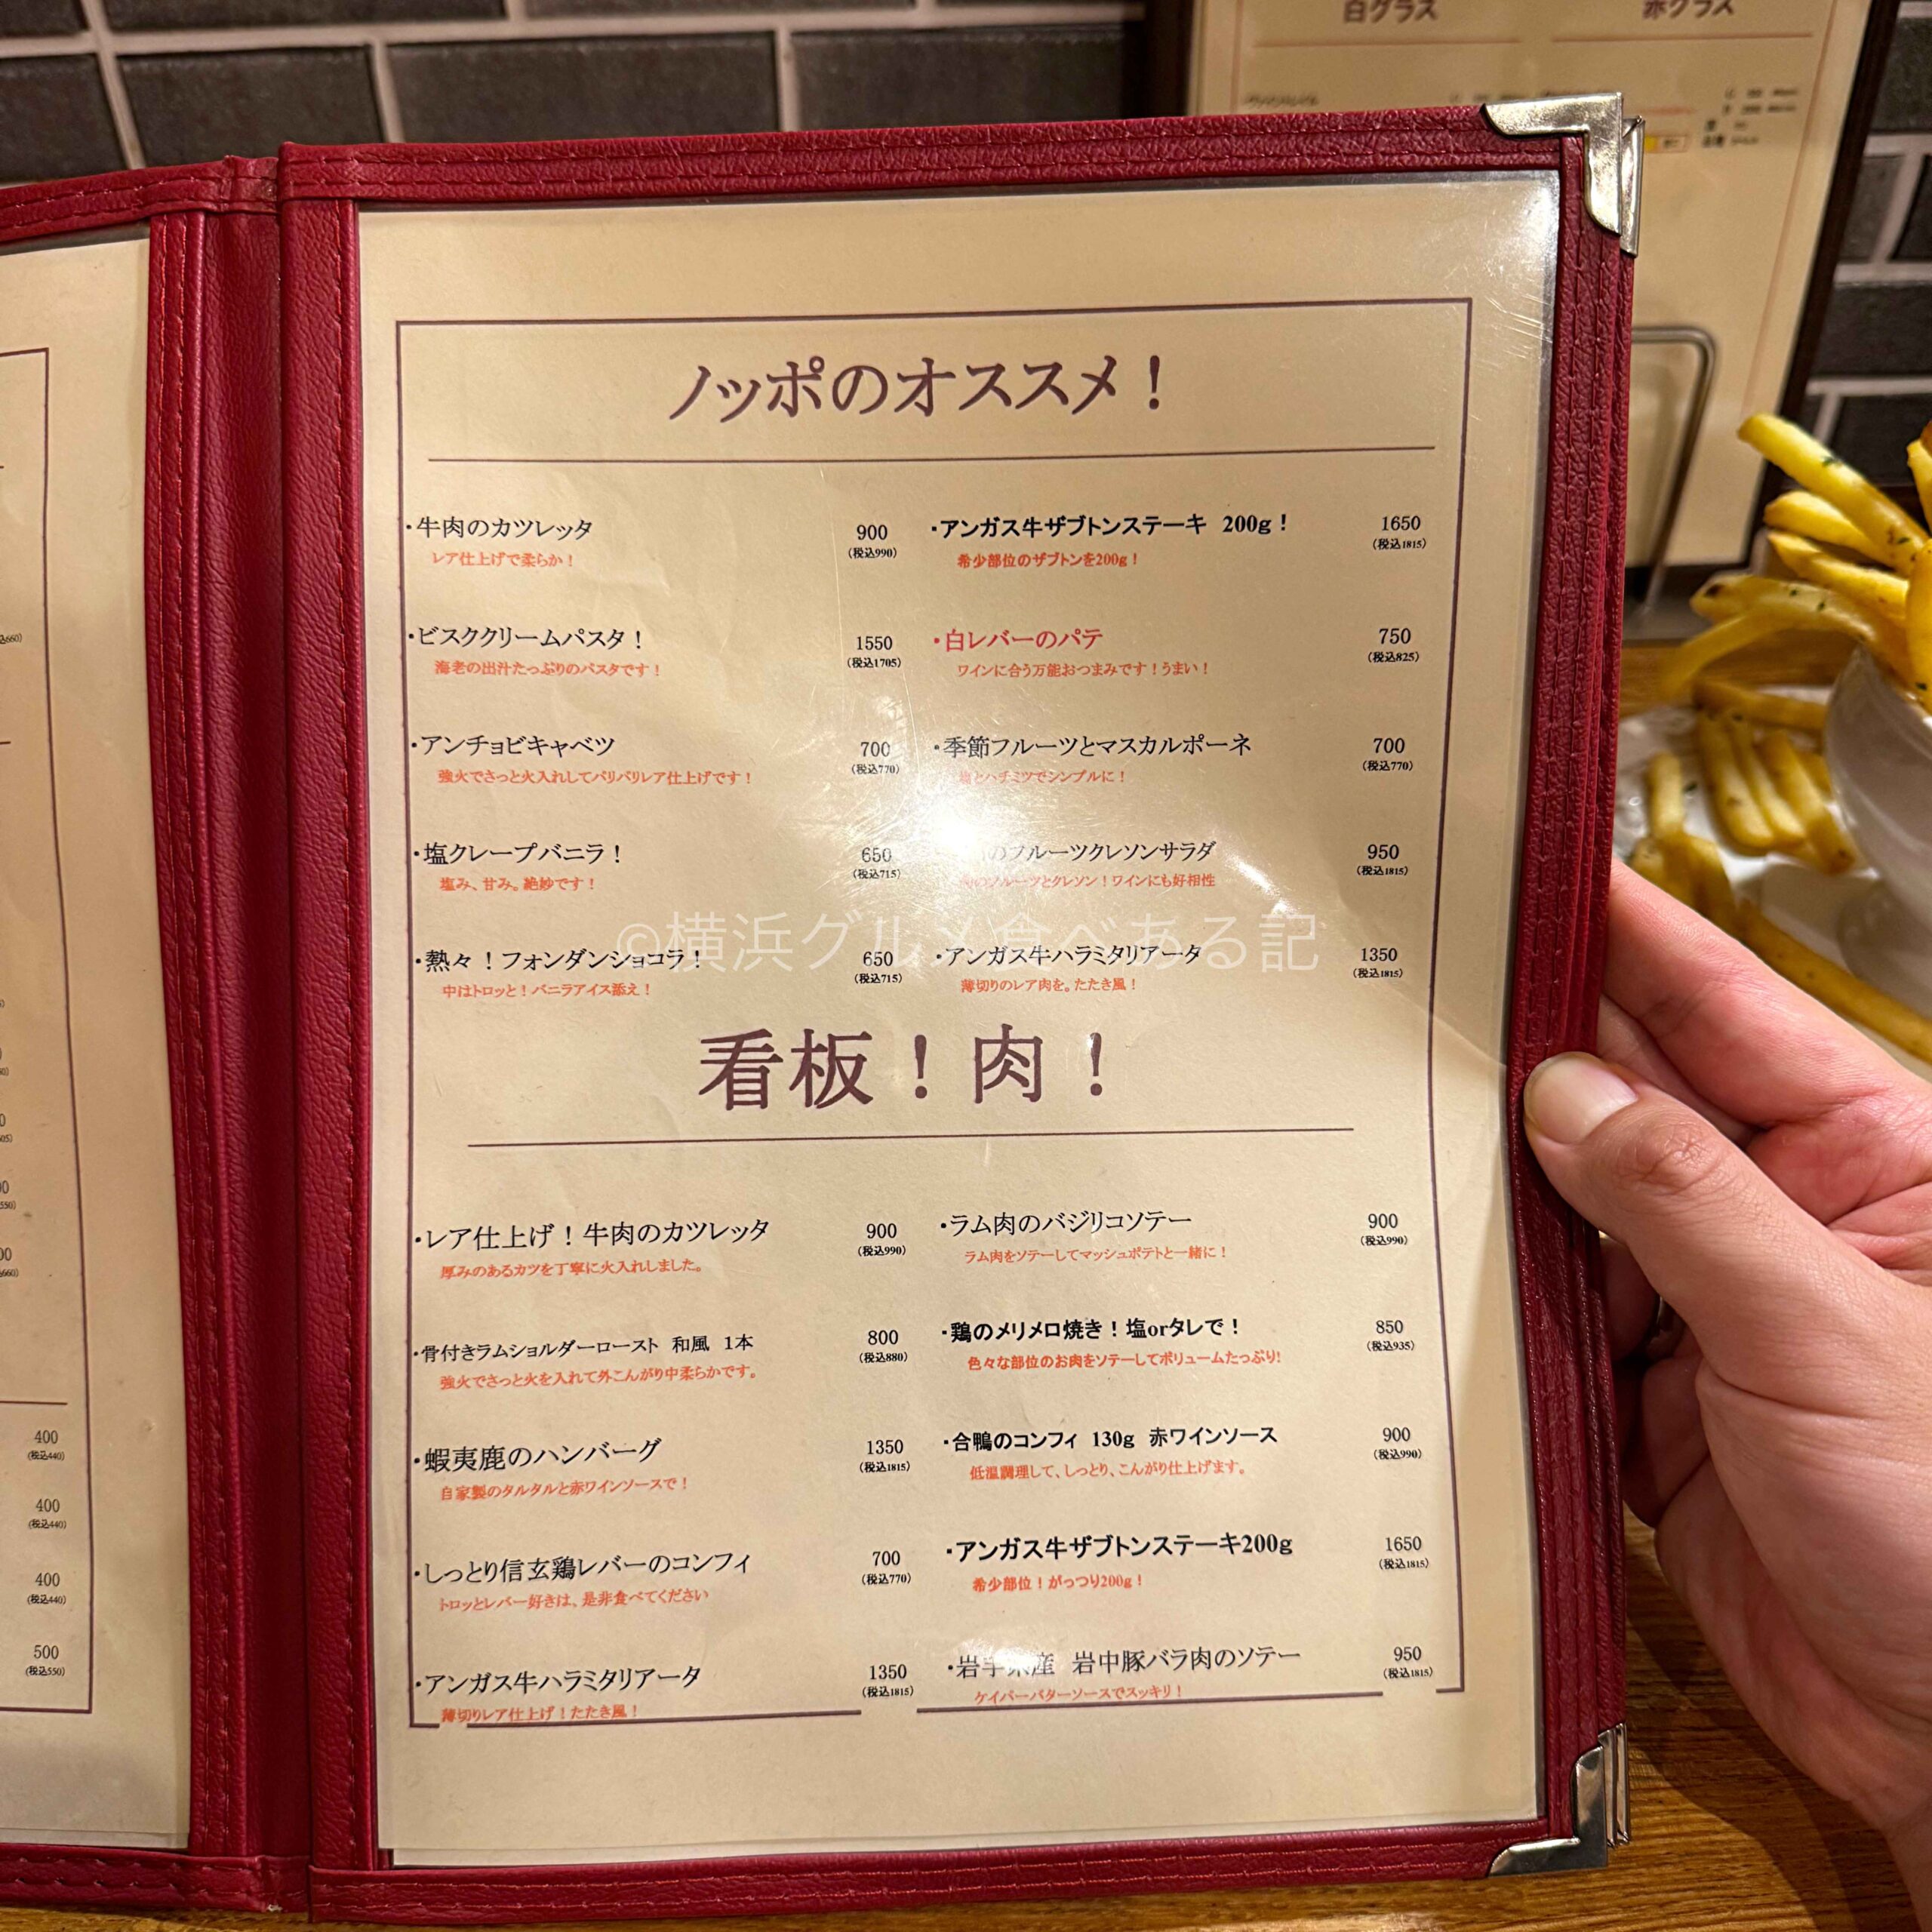 白グラス
赤グラス
ノッポのオススメ！
・牛肉のカツレッタ 900
レア仕上げで柔らか！ (税込990)
・ビスククリームパスタ！ 1550
海老の出汁たっぷりのパスタです！ (税込1705)
・アンチョビキャベツ 700
強火でさっと火入れしてバリバリレア仕上げです！ (税込770)
・塩クレープバニラ！ 650
塩み、甘み。絶妙です！ (税込715)
・熱々！フォンダンショコラ！ 650
中はトロッと！バニラアイス添え！ (税込715)
・アンガス牛ザブトンステーキ 200g！ 1650
希少部位のザブトンを200g！ (税込1815)
・白レバーのパテ 750
ワインに合う万能おつまみです！うまい！ (税込825)
・季節フルーツとマスカルポーネ 700
塩とハチミツでシンプルに！ (税込770)
のフルーツクレソンサラダ 950
のフルーツとクレソン！ワインにも好相性 (税込1815)
・アンガス牛ハラミタリアータ 1350
薄切りのレア肉を。たたき風！ (税込1815)
©横浜グルメ食べある記
看板！肉！
・レア仕上げ！牛肉のカツレッタ 900
厚みのあるカツを丁寧に火入れしました。 (税込990)
・骨付きラムショルダーロースト 和風 1本 800
強火でさっと火を入れて外こんがり中柔らかです。 (税込880)
・蝦夷鹿のハンバーグ 1350
自家製のタルタルと赤ワインソースで！ (税込1815)
・しっとり信玄鶏レバーのコンフィ 700
トロッとレバー好きは、是非食べてください (税込770)
・アンガス牛ハラミタリアータ 1350
薄切りレア仕上げ！たたき風！ (税込1815)
・ラム肉のバジリコソテー 900
ラム肉をソテーしてマッシュポテトと一緒に！ (税込990)
・鶏のメリメロ焼き！塩orタレで！ 850
色々な部位のお肉をソテーしてボリュームたっぷり! (税込935)
・合鴨のコンフィ 130g 赤ワインソース 900
低温調理して、しっとり、こんがり仕上げます。 (税込990)
・アンガス牛ザブトンステーキ200g 1650
希少部位！がっつり200g！ (税込1815)
・岩手県産 岩中豚バラ肉のソテー 950
ケイパーバターソースでスッキリ！ (税込1815)
400
(税込440)
400
(税込440)
400
(税込440)
500
(税込550)